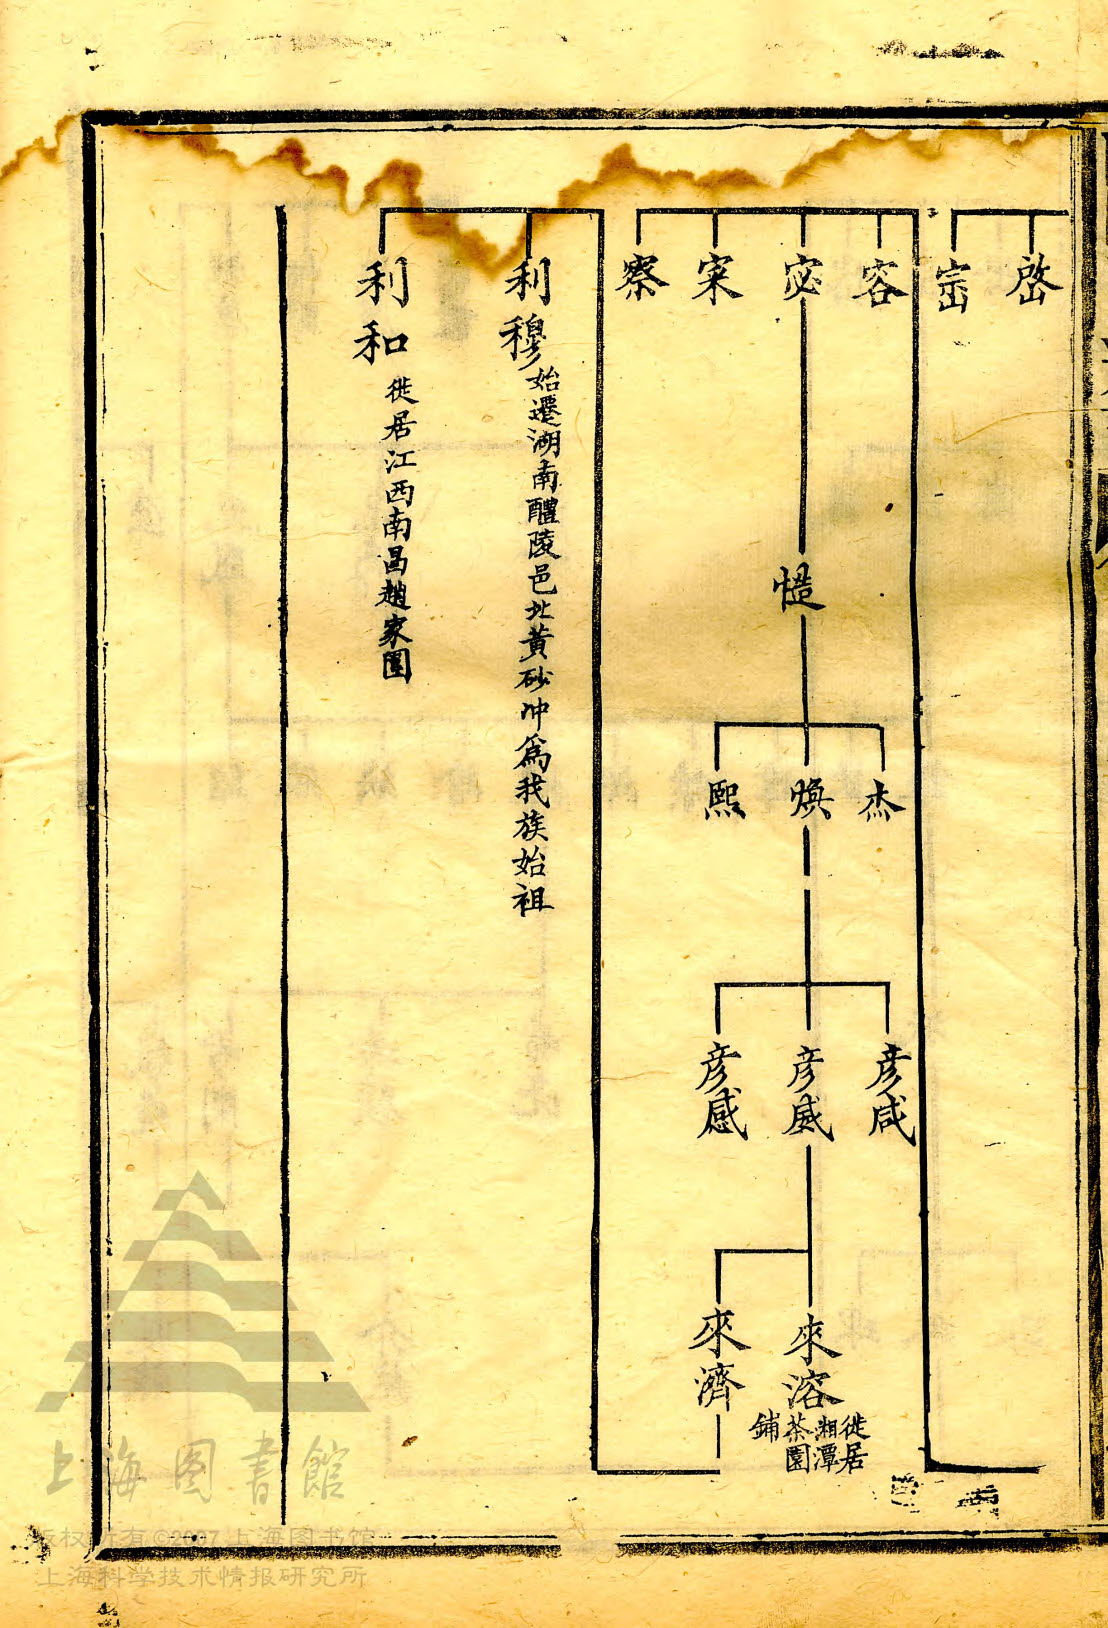 啓
容
宓
寀
察
杰
煥
熙
彦咸
彦威
彦感
來溶
徙居
湘潭
茶園
鋪
來濟
利穆
始遷湖南醴陵邑北黃砂冲爲我族始祖
利和
徙居江西南昌趙家園
上海图書館
版权所有©2007 上海图书馆
上海科学技术情报研究所